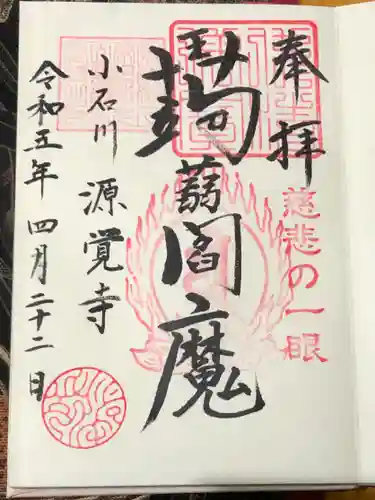 奉拝
慈悲の一眼
蒟蒻閻魔
小石川 源覚寺
令和五年 四月二十二日